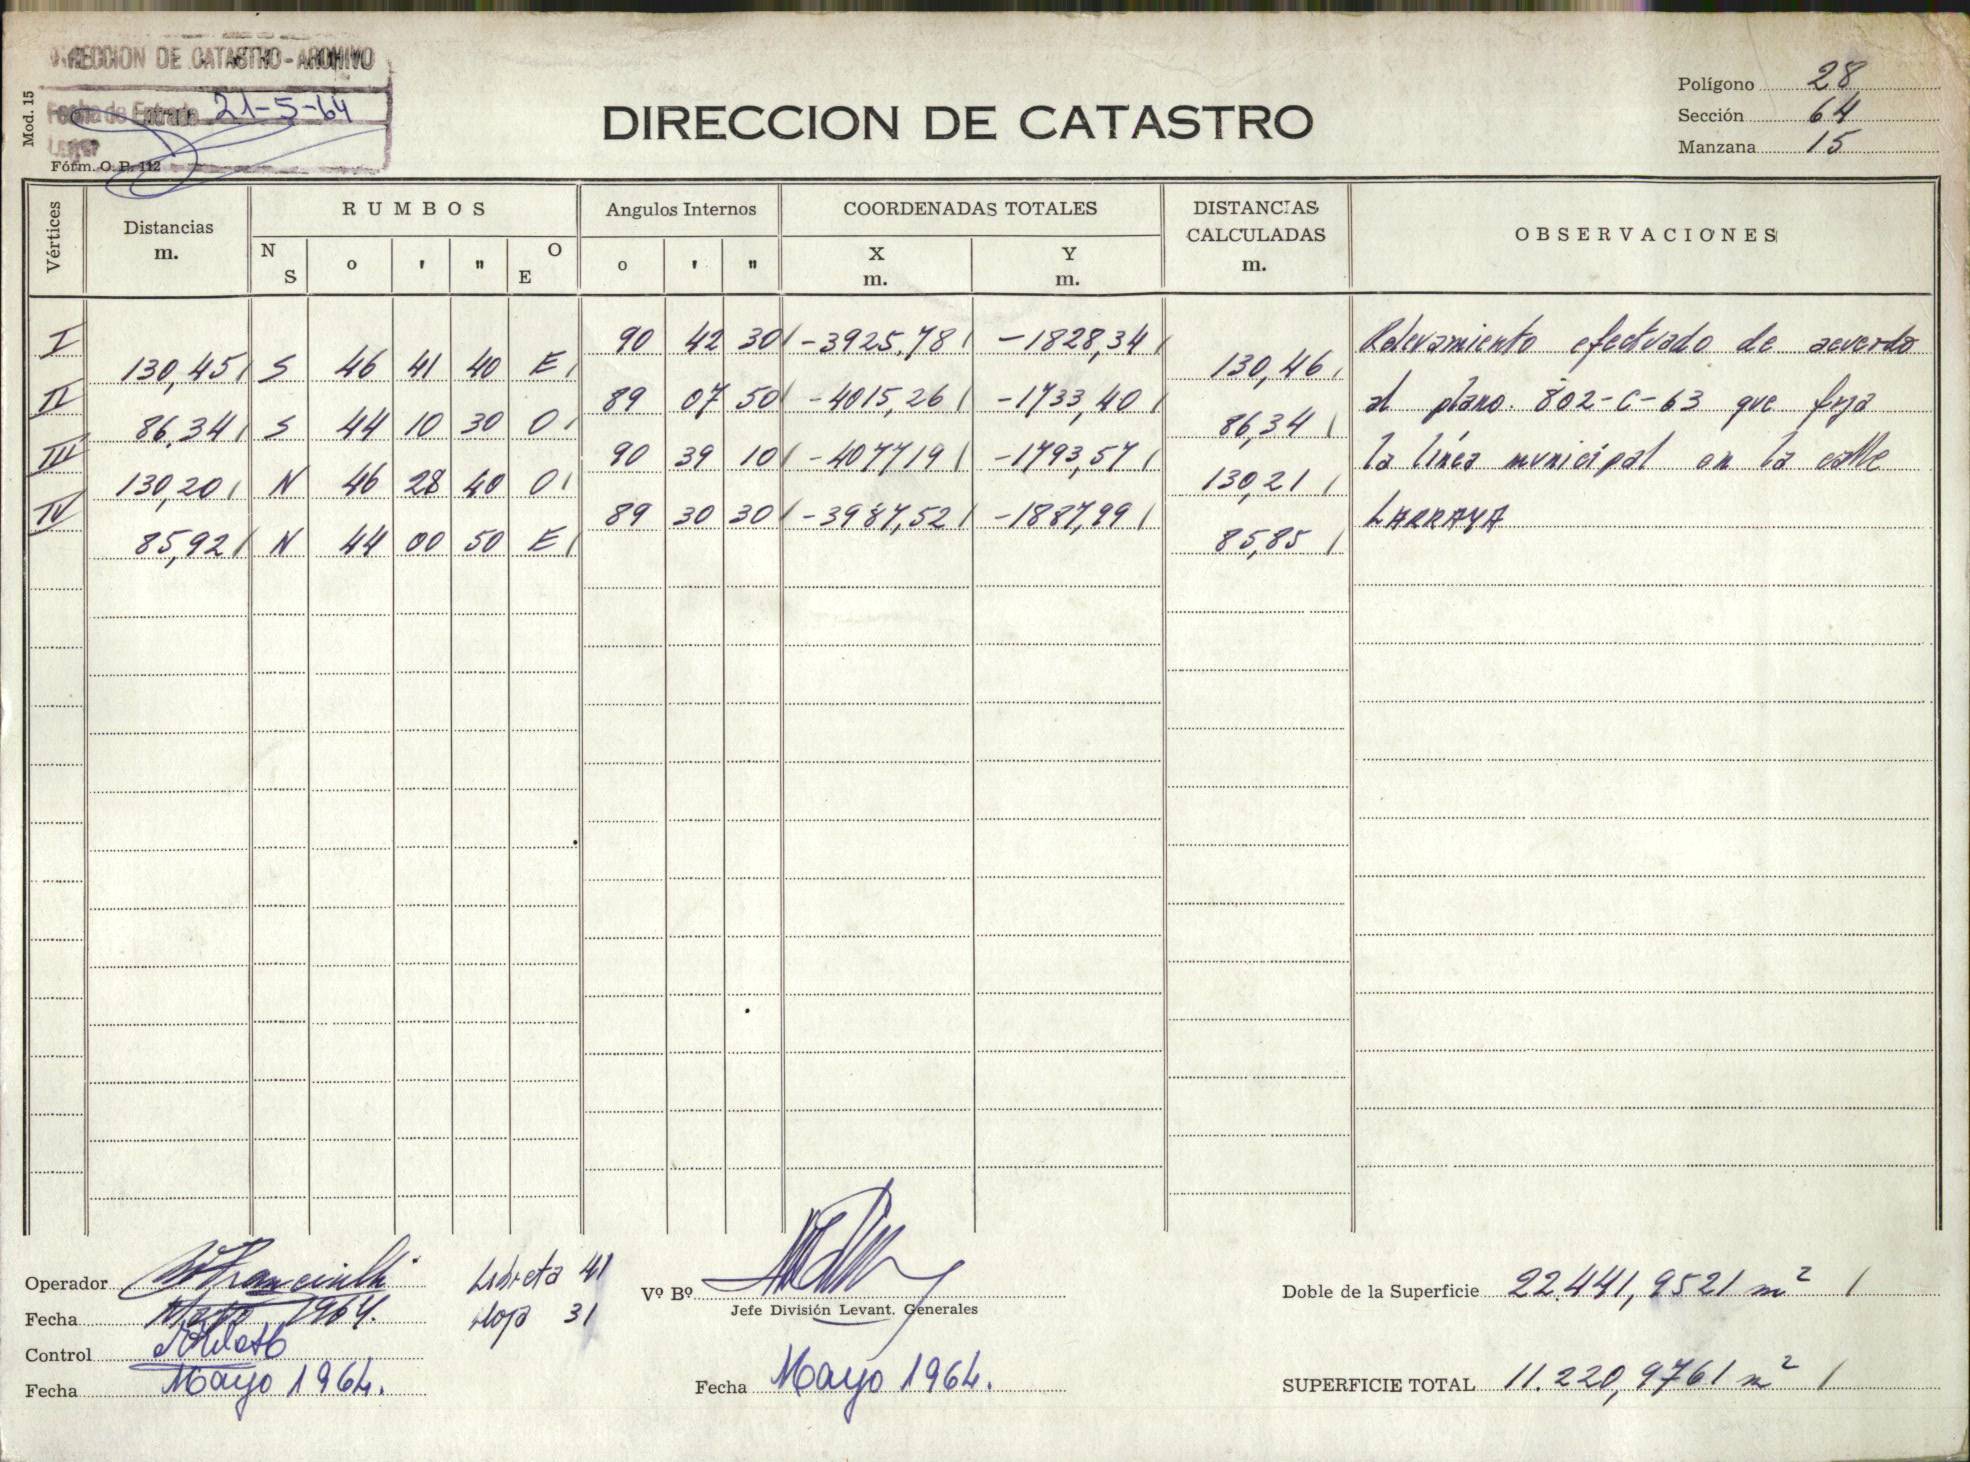 DIRECCION DE CATASTRO-ARCHIVO
Fecha de Entrada 21-5-64
Mod. 15
Fórm. O. P. 112
DIRECCION DE CATASTRO
Polígono 28
Sección 64
Manzana 15
Vértices
Distancias m.
RUMBOS
N S
o ' "
O E
Angulos Internos
o ' "
COORDENADAS TOTALES
X m.
Y m.
DISTANCIAS CALCULADAS m.
OBSERVACIONES
I 90 42 30 -3925,78 -1828,34
130,45 S 46 41 40 E 130,46
II 89 07 50 -4015,26 -1733,40
86,34 S 44 10 30 O 86,34
III 90 39 10 -407719 -1793,57
130,20 N 46 28 40 O 130,21
IV 89 30 30 -3987,52 -1887,99
85,92 N 44 00 50 E 85,85
Relevamiento efectuado de acuerdo
al plano. 802-C-63 que fija
la línea municipal en la calle
LARRAYA
Operador
Fecha Mayo 1964.
Control
Fecha Mayo 1964.
Libreta 41
Hoja 31
Vº Bº
Jefe División Levant. Generales
Fecha Mayo 1964.
Doble de la Superficie 22.441,9521 m²
SUPERFICIE TOTAL 11.220,9761 m²